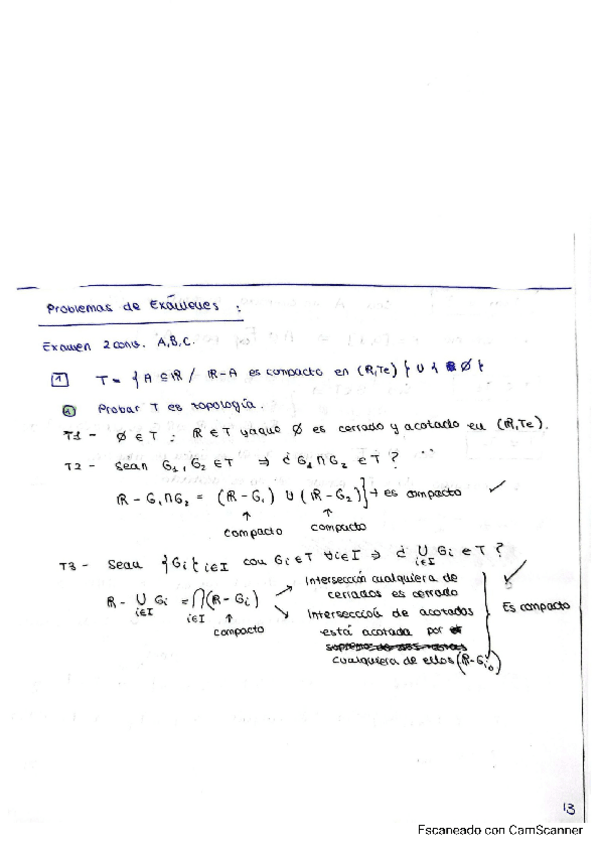 Problemas de Exámenes :
Examen 2 conv. A, B, C.
1 T = { A ⊆ ℝ / ℝ-A es compacto en (ℝ,Te) } ∪ { ∅ }
a Probar T es topología.
T1 - ∅ ∈ T ; ℝ ∈ T ya que ∅ es cerrado y acotado en (ℝ,Te).
T2 - Sean G₁, G₂ ∈ T ⇒ ¿ G₁ ∩ G₂ ∈ T ?
ℝ - G₁∩G₂ = (ℝ-G₁) ∪ (ℝ-G₂) } → es compacto ✓
↑ compacto ↑ compacto
T3 - Sean {Gi}i∈I con Gi ∈ T ∀i∈I ⇒ ¿ ⋃i∈I Gi ∈ T ?
ℝ - ⋃i∈I Gi = ⋂i∈I (ℝ-Gi)
↑ compacto
Intersección cualquiera de
cerrados es cerrado
Intersección de acotados
está acotada por
cualquiera de ellos (ℝ-Gi₀)
✓
Es compacto
13
Escaneado con CamScanner